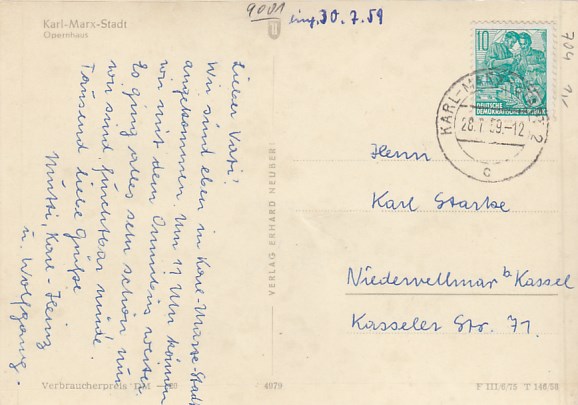 Karl-Marx-Stadt
Opernhaus
9001
eing. 30.7.59
704
Lieber Vati!
Wir sind eben in Karl-Marx-Stadt
angekommen. Um 11 Uhr können
wir mit dem Omnibus weiter.
Es ging alles sehr schön, nur
wir sind furchtbar müde.
Tausend liebe Grüße
Mutti, Karl-Heinz
u. Wolfgang.
VERLAG ERHARD NEUBERT
10
DEUTSCHE
DEMOKRATISCHE REPUBLIK
KARL-MARX-STADT 2
28.7.59.-12
c
Herrn
Karl Starke
Niedervellmar b Kassel
Kasseler Str. 71.
Verbraucherpreis DM
4079
F III/6/75 T 146/58